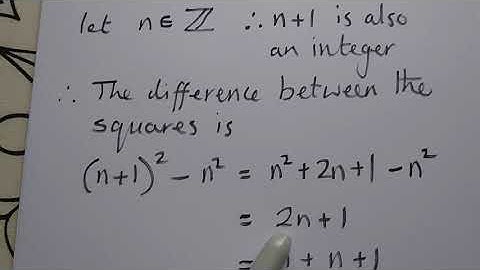 let n ∈ ℤ ∴ n+1 is also
an integer
∴ The difference between the
squares is
(n+1)² − n² = n² + 2n + 1 − n²
= 2n + 1
= n + n + 1